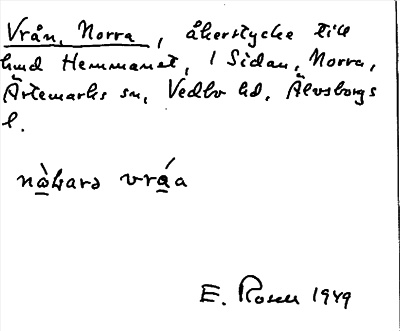 Vrån, Norra, åkerstycke till
hmd Hemmanet, 1 Sidan, Norra,
Ärtemarks sn, Vedbo hd, Älvsborgs
l.
nò̱karə vrá̱a
E. Rosell 1949